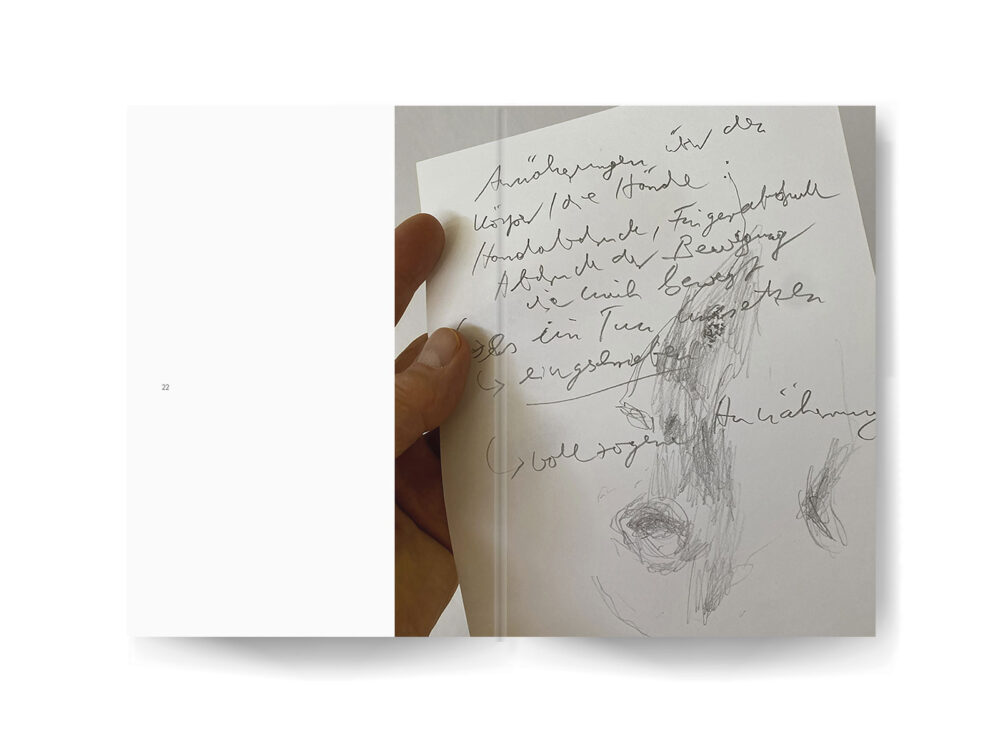 22
Annäherungen über den
Körper / die Hände :
Handabdruck, Fingerabdruck
Abdruck der Bewegung
die mich bewegt
ins ein Tun umsetzen
↳ eingeschrieben
↳ vollzogene Annäherung